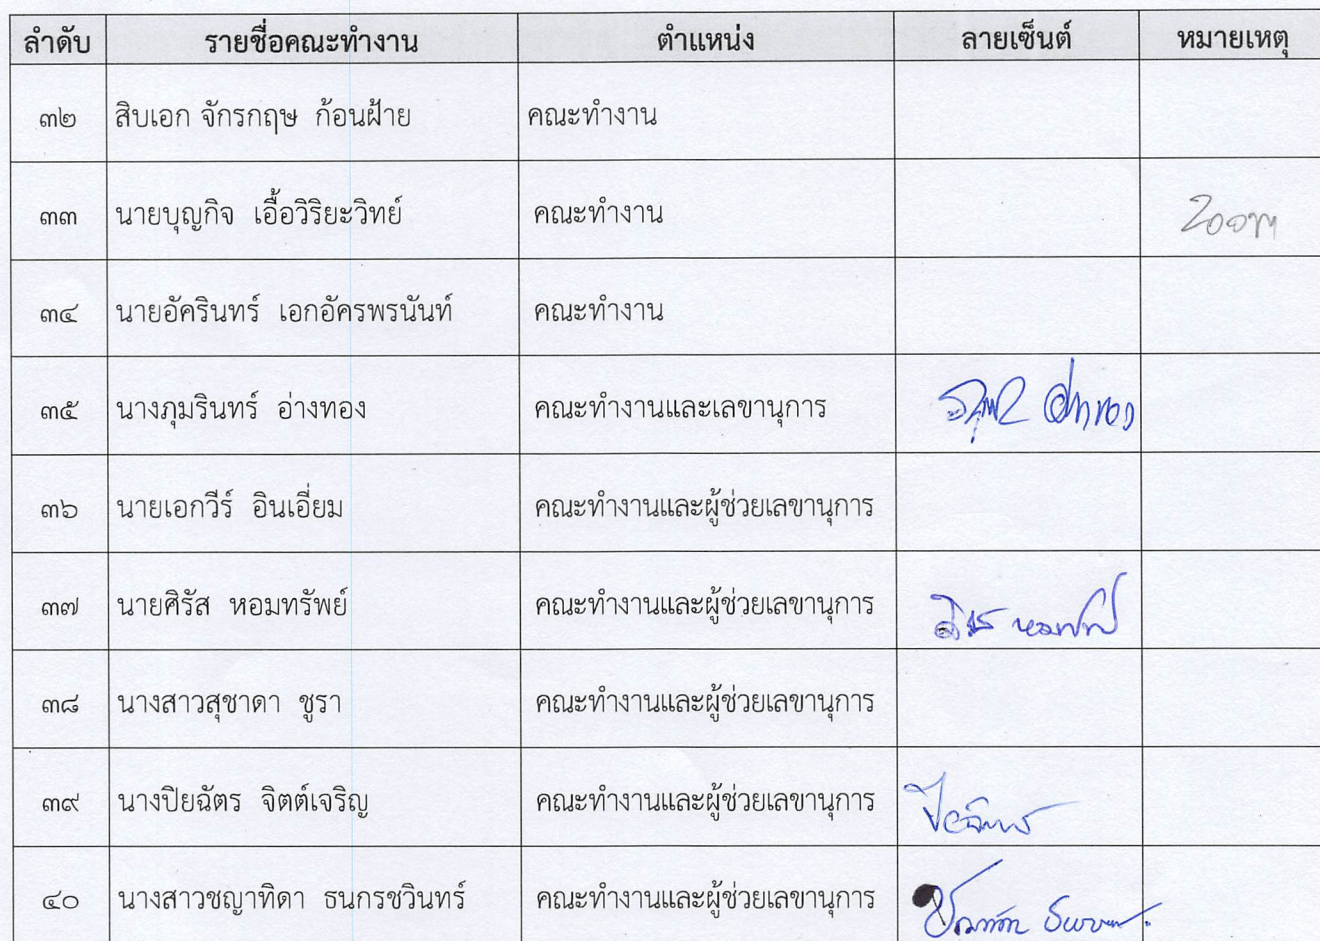 ลำดับ รายชื่อคณะทำงาน ตำแหน่ง ลายเซ็นต์ หมายเหตุ
๓๒ สิบเอก จักรกฤษ ก้อนฝ้าย คณะทำงาน
๓๓ นายบุญกิจ เอื้อวิริยะวิทย์ คณะทำงาน Zoom
๓๔ นายอัครินทร์ เอกอัครพรนันท์ คณะทำงาน
๓๕ นางภุมรินทร์ อ่างทอง คณะทำงานและเลขานุการ อ่างทอง
๓๖ นายเอกวีร์ อินเอี่ยม คณะทำงานและผู้ช่วยเลขานุการ
๓๗ นายศิรัส หอมทรัพย์ คณะทำงานและผู้ช่วยเลขานุการ
๓๘ นางสาวสุชาดา ชูรา คณะทำงานและผู้ช่วยเลขานุการ
๓๙ นางปิยฉัตร จิตต์เจริญ คณะทำงานและผู้ช่วยเลขานุการ ปิยฉัตร
๔๐ นางสาวชญาทิดา ธนกรชวินทร์ คณะทำงานและผู้ช่วยเลขานุการ